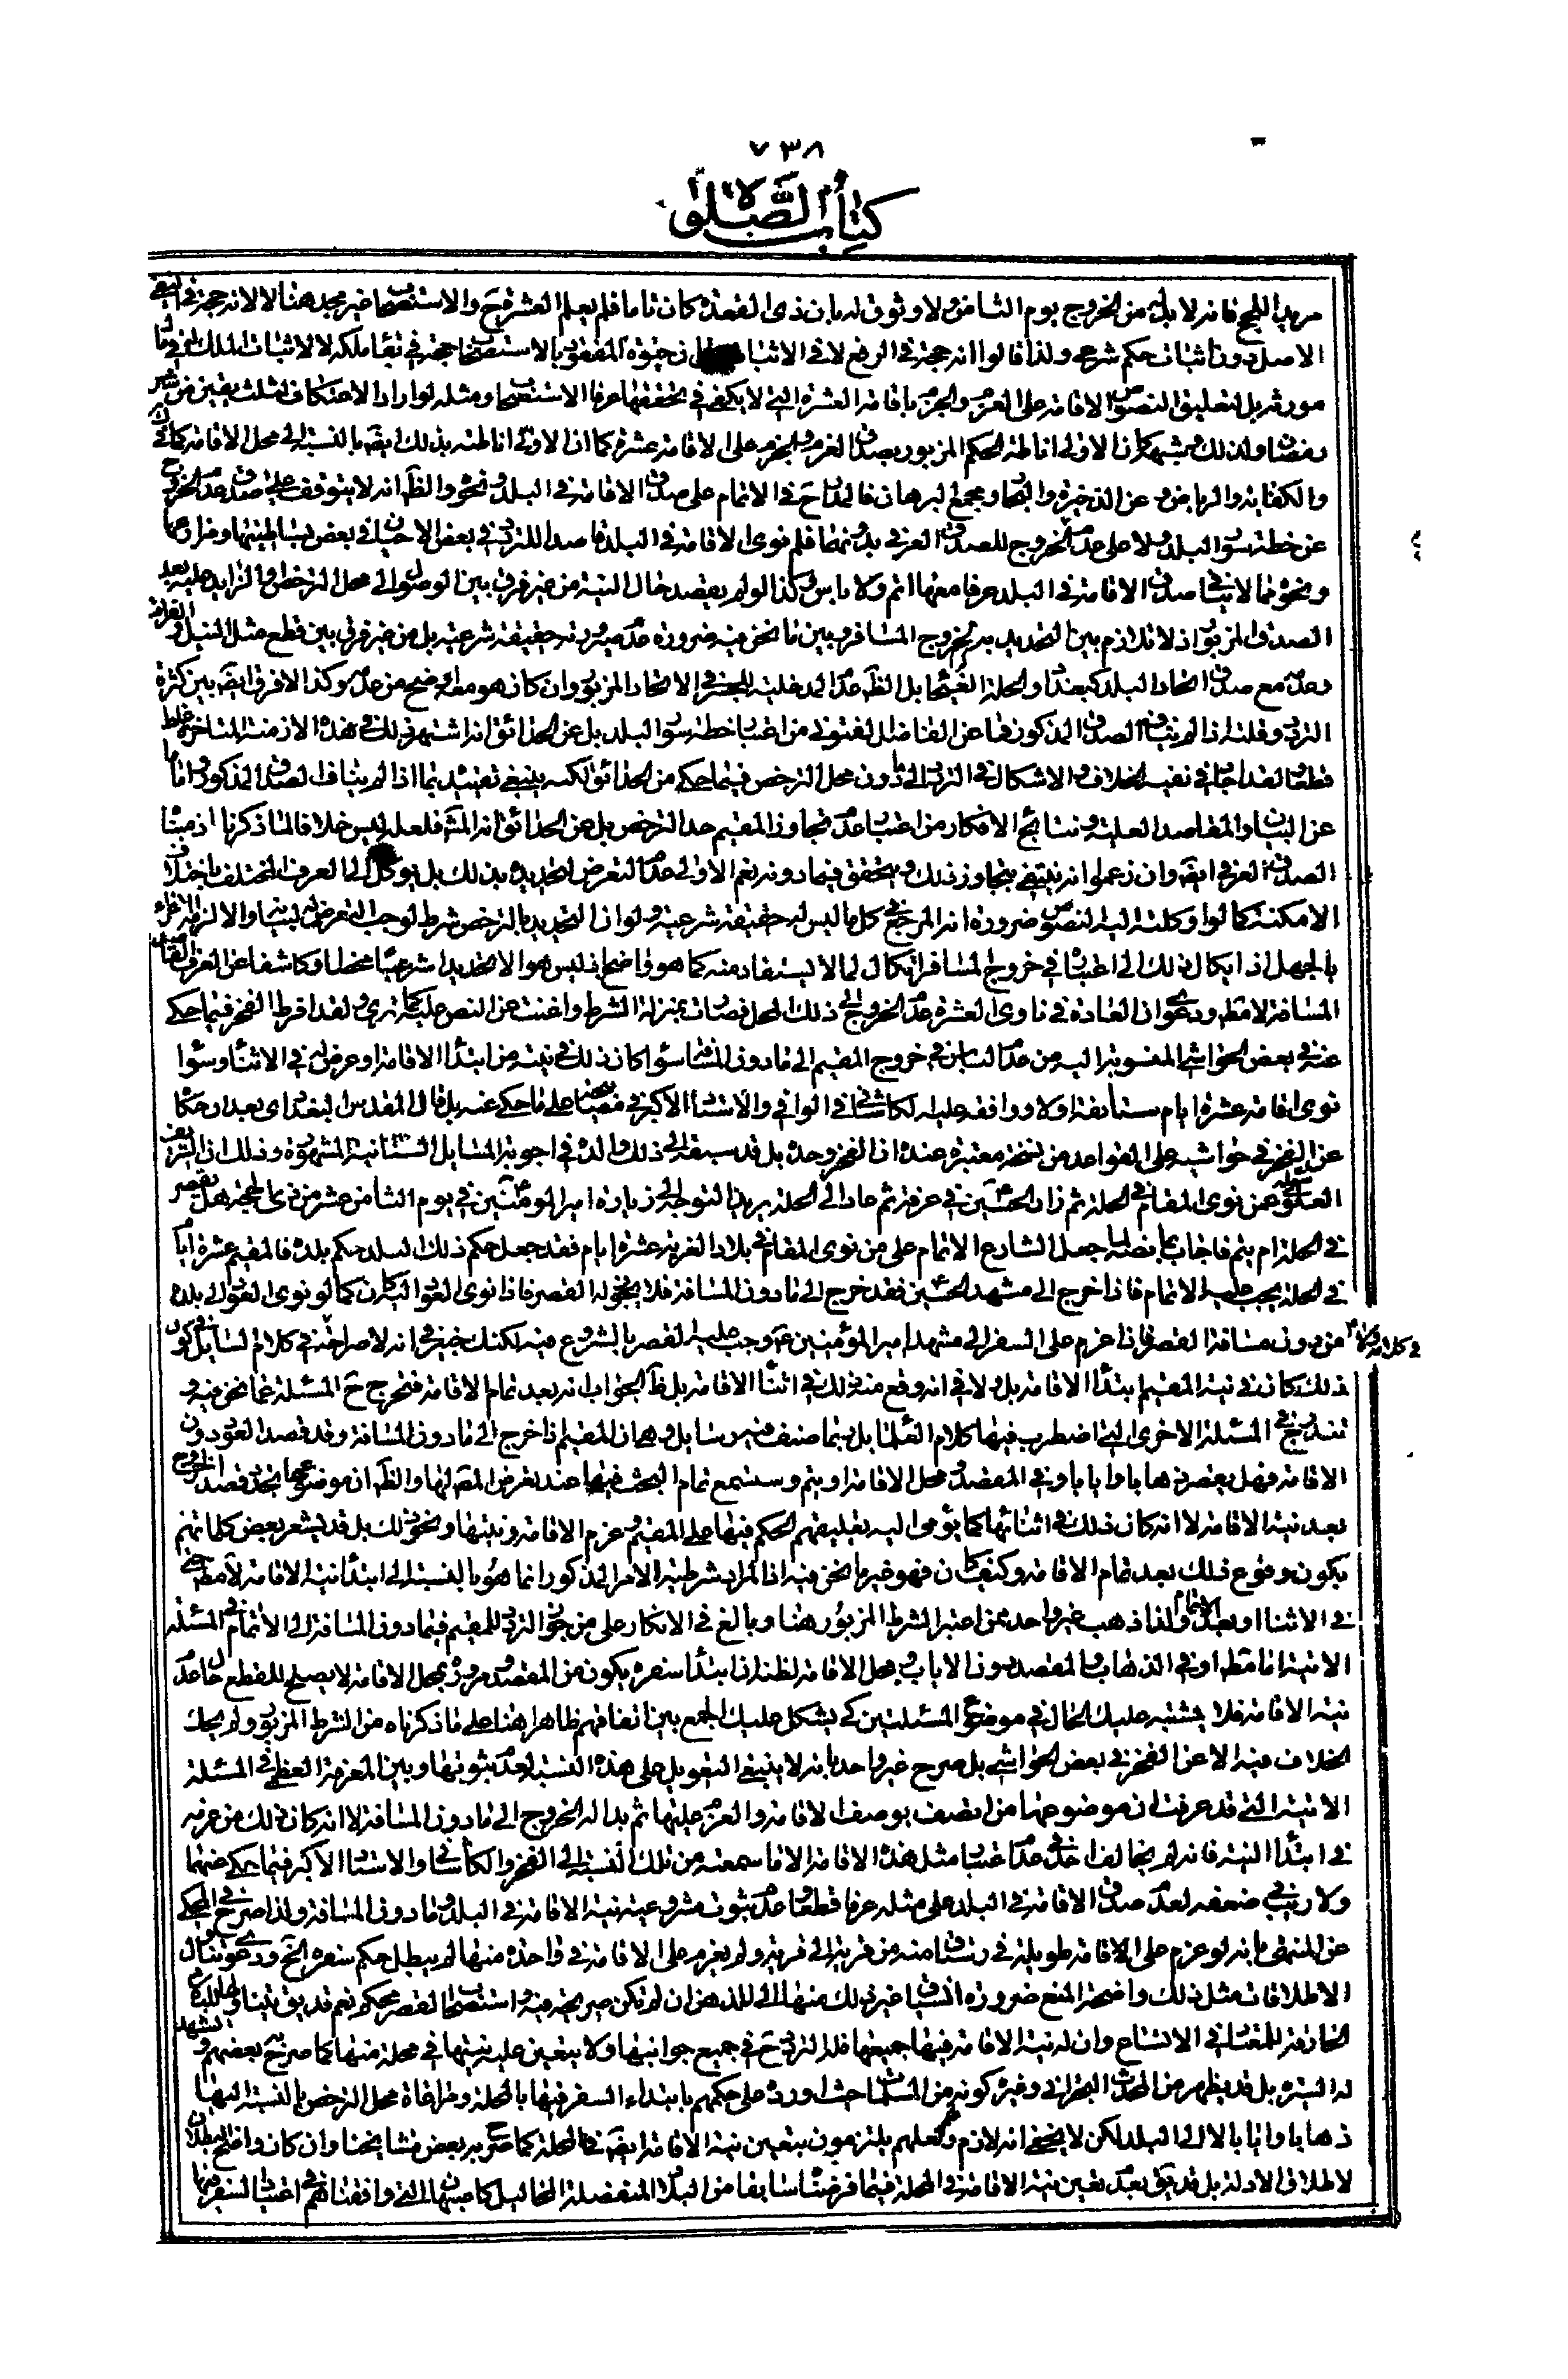 ٧٣٨
كتاب الصلوة
مريدا للحج فانه لا بد له من الخروج يوم الثامن ولا وثوق له بان ذي القعدة كان تاما فلم يعلم العشرة ح والاستصحاب غير مجد هنا الا لانه حجة في النفي
الاصل دون اثبات حكم شرعي ولذا قالوا انه حجة في الرفع لا في الاثبات حيوة المفقود بالاستصحاب حجة في بقاء ملكه لا لاثبات الملك له في مال
مورثه بل لتعليق النصوص الاقامة على العزم والجزم باقامة العشرة التي لا يكفي في تحققها عرفا الاستصحاب ومثله لو اراد الاعتكاف لثلث بقين من شهر
رمضان ولذلك كان الاولى اناطة الحكم المزبور بصدق العزم والجزم على الاقامة عشرة كما ان الاولى اناطته بذلك ايضه بالنسبة الى محل الاقامة كما في
والكفاية والرياض وعن الذخيرة والبحار ومجمع البرهان فالمدار ح في الاتمام على صدق الاقامة في البلد ونحوه والظ انه لا يتوقف على صدق عدم الخروج
عن خطة سور البلد ولا على عدم الخروج للصدق العرفي بدونهما فلو نوى الاقامة في البلد قاصدا للتردد في بعض الاحيان في بعض بساتينها ومزارعها
ونحوها مما لا ينافي صدق الاقامة في البلد عرفا معها اتم ولا باس وكذا لو لم يقصد حال النية من غير فرق بين الوصول الى محل الترخص والزايد عليه بعد
الصدق المزبور اذ لا تلازم بين التحديد به لخروج المسافر وبين ما نحن فيه ضرورة عدم صيرورته حقيقة شرعية بل من غير فرق بين قطع مثل النيل والفرات
وعدمه مع صدق اتحاد البلد كبغداد والحلة الفيحاء بل الظ عدم المدخلية للجسر في الاتحاد المزبور وان كان هو معه اوضح من عدمه وكذا لا فرق ايضه بين كثرة
التردد وقلته اذا لم يناف الصدق المذكور فما عن الفاضل الفتوني من اعتبار خطة سور البلد بل عن الحدائق انه اشتهر ذلك في هذه الازمنة المتاخرة غلط
قطعا ولقد اجاد في نفيه الخلاف والاشكال في التردد الى ما دون محل الترخص فيما حكي من الحدائق لكنه ينبغي تقييده بما اذا لم يناف الصدق المذكور واما ما
عن البيان والمقاصد العلية ونتائج الافكار من اعتبار عدم تجاوز المقيم حد الترخص بل عن الحدائق انه المشهور فلعله ليس خلافا لما ذكرنا اذ مبناه
الصدق العرفي ايضه وان زعموا انه ينتفي بتجاوز ذلك ويتحقق فيما دونه نعم الاولى عدم التعرض لتحديده بذلك بل يوكل الى العرف المختلف باختلاف
الامكنة كما لو اوكلته اليه النصوص ضرورة انه المرجع في كل ما ليس له حقيقة شرعية ولو ان التحديد بالترخص شرط لوجب التعرض له لبيانه والا لزم الاغراء
بالجهل اذ ايكال ذلك الى اعتباره في خروج المسافر ايكال لما لا يستفاد منه كما هو واضح اذ ليس هو الا تحديدا شرعيا محضا او كاشفا عن العرف لقاصد
المسافة لا مطلقا ودعوى ان العادة في ناوي العشرة عدم الخروج الى ذلك المحل فصارت بمنزلة الشرط واغنت عن النص عليه كما ترى ولقد افرط الفخر فيما حكي
عنه في بعض الحواشي المنسوبة اليه من عدم الباس في خروج المقيم الى ما دون المسافة سواء كان ذلك في نيته من ابتداء الاقامة او عرض له في الاثناء وسواء
نوى اقامة عشرة ايام مستانفة اولا ووافقه عليه الكاشاني في الوافي والاستاد الاكبر في مصابيحه على ما حكي عنه بل قال المقدس البغدادي بعد ان حكاه
عن الفخر في حواشيه على القواعد من نسخة معتبرة عنده ان الفخر وحده بل قد سبقه الى ذلك والده في اجوبة المسايل السنانية المشهورة وذلك ان الشريف
العلوي سئله عمن نوى المقام في الحلة ثم زار الحسين في عرفة ثم عاد الى الحلة يريد التوجه الى زيارة امير المؤمنين في يوم الثامن عشر من ذي الحجة هل يقصر
في الحلة ام يتم فاجاب بما نصه جعل الشارع الاتمام على من نوى المقام في بلاد الغربة عشرة ايام فقد جعل حكم ذلك البلد حكم بلده فالمقيم عشرة ايام
في الحلة يجب عليه الاتمام فاذا خرج الى مشهد الحسين فقد خرج الى ما دون المسافة فلا يجوز له القصر فاذا نوى العود اليها كان كما لو نوى العود الى بلده
من دون مسافة القصر فاذا عزم على السفر الى مشهد امير المؤمنين ع وجب عليه القصر بالشروع فيه لكنك خبير انه لا صراحة في كلام السائل في كون
ذلك كان في نية المقيم ابتداء الاقامة بل ولا في انه وقع منه ذلك في اثناء الاقامة بل ظ الجواب انه بعد تمام الاقامة فتخرج ح المسئلة عما نحن فيه و
تندرج في المسئلة الاخرى التي اضطرب فيها كلام العلماء بل ربما صنف فيه رسايل وهي ان المقيم اذا خرج الى ما دون المسافة وقد قصد العود دون
الاقامة فهل يقصر ذهابا وايابا وفي المقصد ومحل الاقامة او يتم وستسمع تمام البحث فيها عند تعرض المص لها والظ ان موضوعها تجدد قصد الخروج
بعد نية الاقامة لا انه كان ذلك في اثنائها كما يومي اليه تعليقهم الحكم فيها على المقيم وعزم الاقامة ونيتها ونحو ذلك بل قد يشعر بعض كلماتهم
بكون وقوع ذلك بعد تمام الاقامة وكيف كان فهو غير ما نحن فيه اذ المراد شرطية الامر المذكور انما هو بالنسبة الى ابتداء نية الاقامة لا مطلقا حتى
في الاثناء او بعد الاتمام ولذا ذهب غير واحد ممن اعتبر الشرط المزبور هنا وبالغ في الانكار على من جوز التردد للمقيم فيما دون المسافة الى الاتمام في المسئلة
الاتية اما مطلقا او في الذهاب والمقصد دون الاياب ومحل الاقامة لظنه ان ابتداء سفره يكون من المقصد ومروره بمحل الاقامة لا يصلح للقطع حال عدم
نية الاقامة فلا يشتبه عليك الحال في موضوع المسئلتين كي يشكل عليك الجمع بين اتفاقهم ظاهرا هنا على ما ذكرناه من الشرط المزبور ولم يحك
الخلاف فيه الا عن الفخر في بعض الحواشي بل صرح غير واحد بانه لا ينبغي التعويل على هذه النسبة لعدم ثبوتها وبين المعركة العظمى في المسئلة
الاتية التي قد عرفت ان موضوعها من اتصف بوصف الاقامة والعزم عليها ثم بدا له الخروج الى ما دون المسافة لا انه كان ذلك من عزمه
في ابتداء النية فانه لم يخالف احد في عدم اعتبار مثل هذه الاقامة الا ما سمعته من تلك النسبة الى الفخر والكاشاني والاستاد الاكبر فيما حكي عنهما
ولا ريب في ضعفه لعدم صدق الاقامة في البلد على مثله عرفا قطعا وعدم ثبوت مشروعية نية الاقامة في البلد وما دون المسافة ولذا صرح في المحكي
عن المنتهى بانه لو عزم على الاقامة طويلة في رستاق منه من قرية الى قرية ولم يعزم على الاقامة في واحدة منها لم يبطل حكم سفره الخ ودعوى تناول
الاطلاقات مثل ذلك واضحة المنع ضرورة انسباق غير ذلك منها الى الذهن ان لم تكن صريحة فيه واستصحاب القصر محكم نعم قد يقال بتناولها للبلد
الخارقة للمعتاد في الاتساع وان له نية الاقامة فيها جميعها فله التردد ح في جميع جوانبها ولا يتعين عليه نيتها في محلة منها كما صرح بعضهم ويشهد
له السيرة بل قد يظهر من المحدث البحراني وغيره كونه من المسلمات حيث اورده على حكمهم بابتداء السفر فيها بالمحلة ومراعاة محل الترخص بالنسبة اليها
ذهابا وايابا لا الى البلد لكن لا يخفى انه لازم ولعلهم يلتزمون بتعيين نية الاقامة ايضه في المحلة كما صرح به بعض مشايخنا وان كان واضح البطلان
لاطلاق الادلة بل قد يق بعدم تعين نية الاقامة في المحلة فيما فرضناه سابقا من البلد المنفصلة المحال بل كاصبهان التي وافقناهم في اعتبار السفر منها